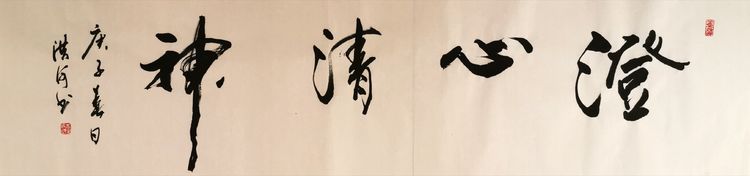 澄心清神
庚子春日
洪河书